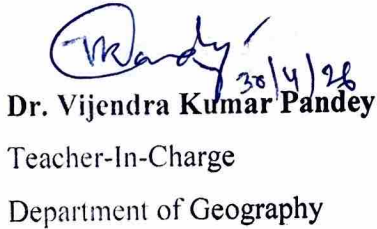 30/4/26
Dr. Vijendra Kumar Pandey
Teacher-In-Charge
Department of Geography